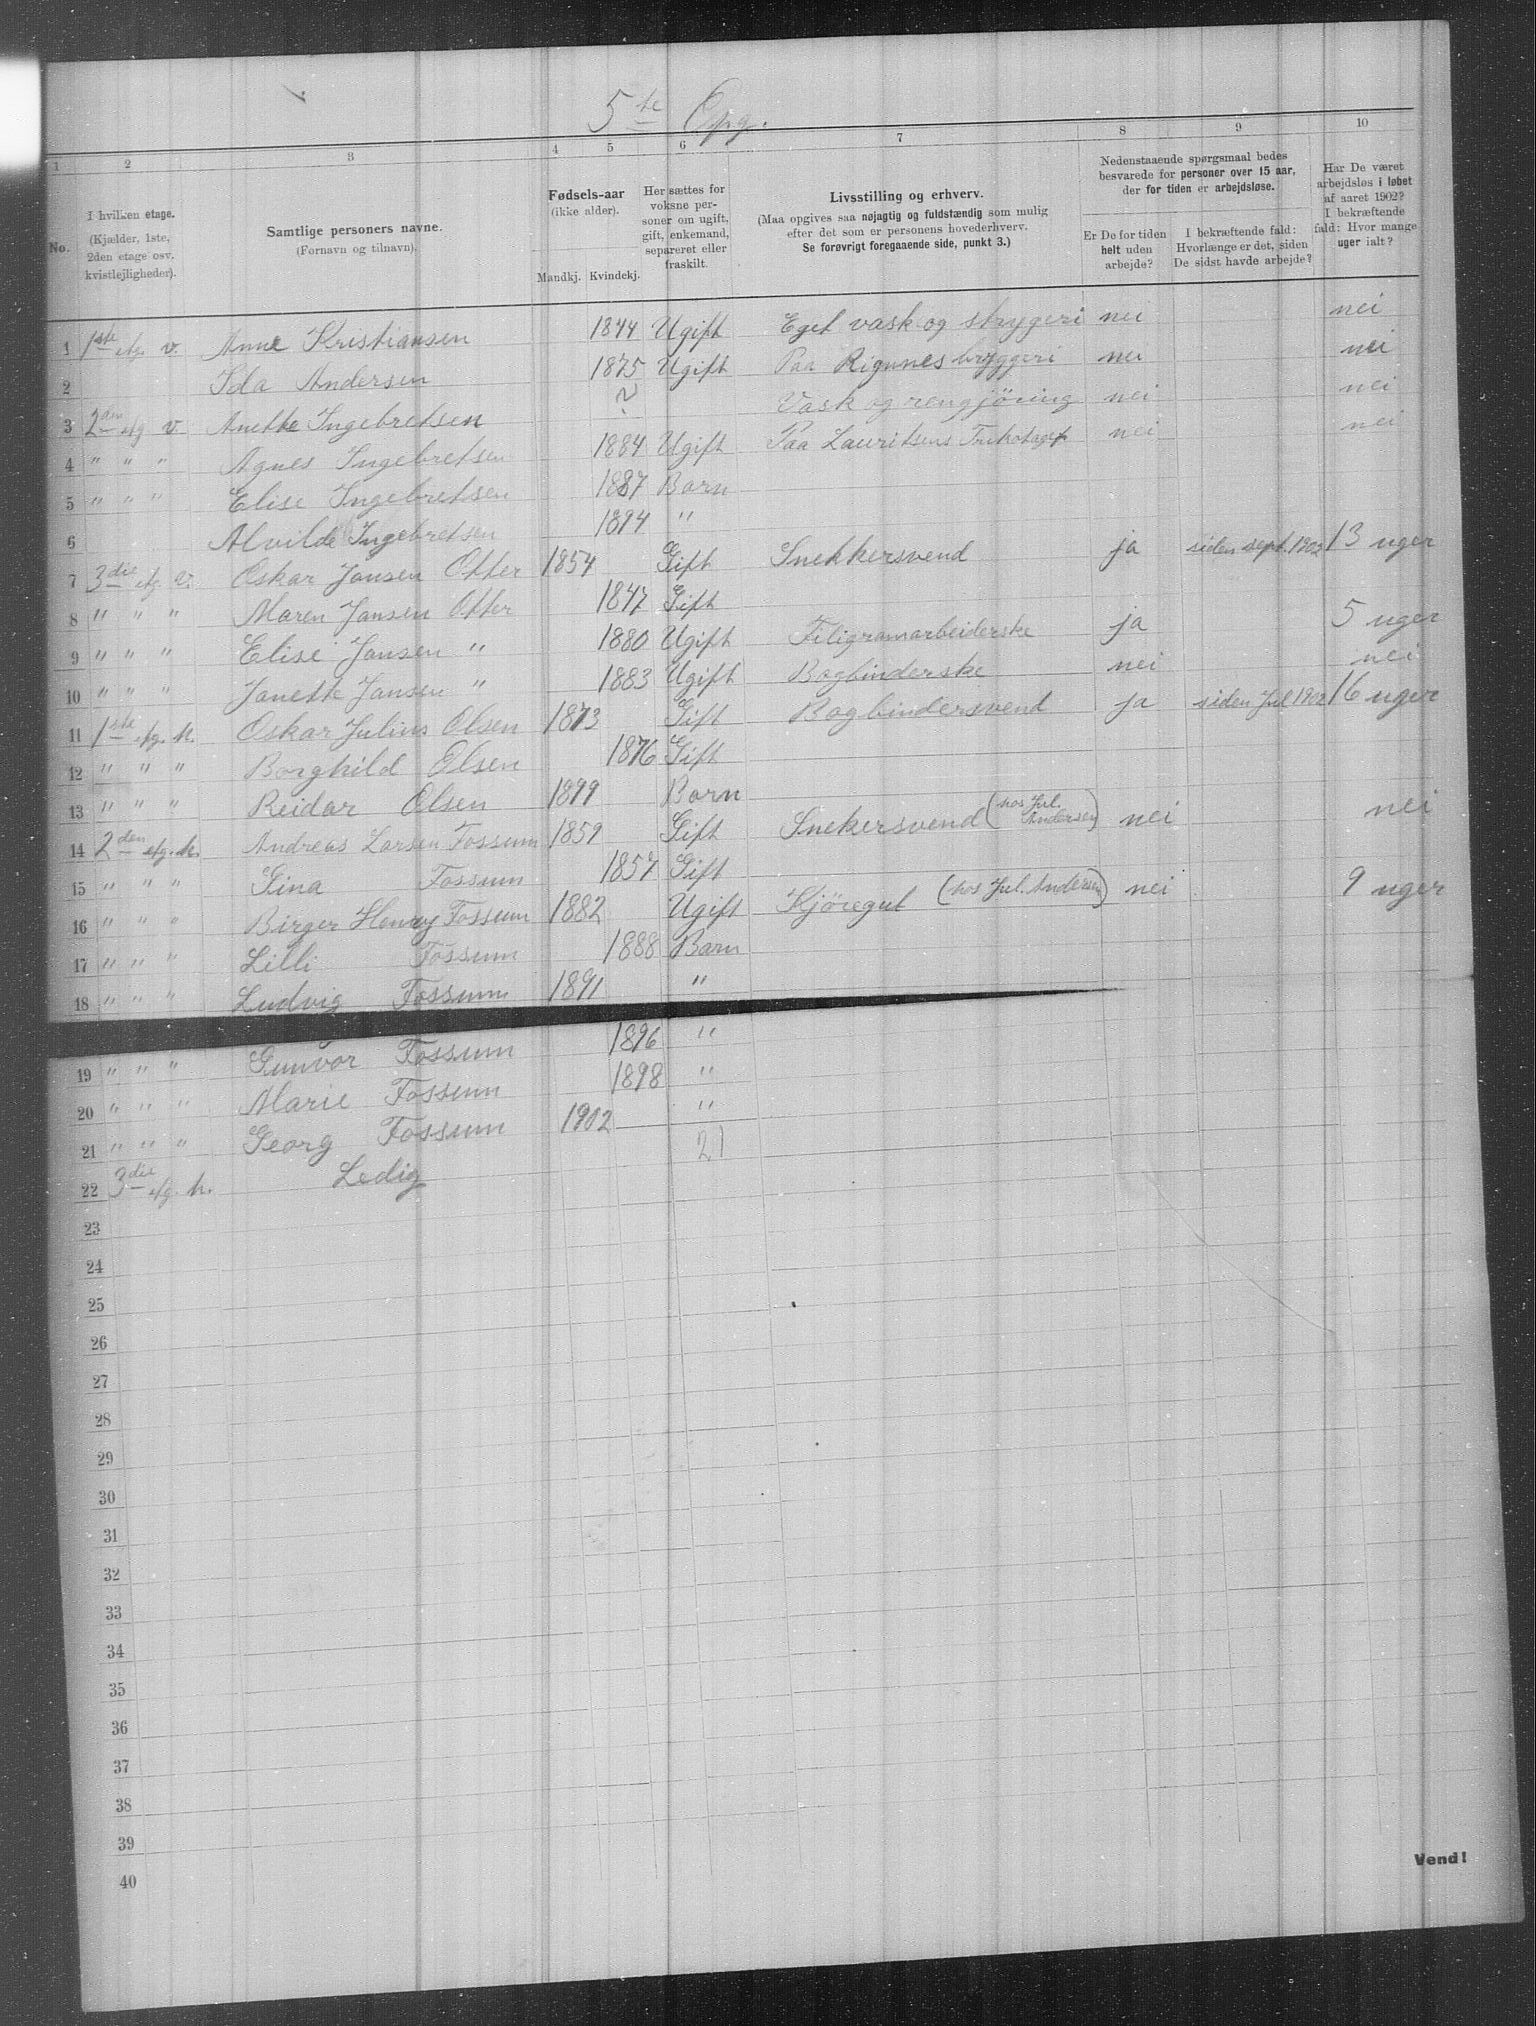 5te Opg.
1 2 3 4 5 6 7 8 9 10
No.
I hvilken etage.
(Kjælder, 1ste,
2den etage osv.
kvistlejligheder).
Samtlige personers navne.
(Fornavn og tilnavn).
Fødsels-aar
(ikke alder).
Mandkj. Kvindekj.
Her sættes for
voksne per-
soner om ugift,
gift, enkemand,
separeret eller
fraskilt.
Livsstilling og erhverv.
(Maa opgives saa nøjagtig og fuldstændig som mulig
efter det som er personens hovederhverv.
Se forøvrigt foregaaende side, punkt 3.)
Nedenstaaende spørgsmaal bedes
besvarede for personer over 15 aar,
der for tiden er arbejdsløse.
Er De for tiden
helt uden
arbejde?
I bekræftende fald:
Hvorlænge er det, siden
De sidst havde arbejde?
Har De været
arbejdsløs i løbet
af aaret 1902?
I bekræftende
fald: Hvor mange
uger ialt?
1 1ste etg. v. Anne Kristiansen 1844 Ugift Eget vask og strygeri nei nei
2 Ida Andersen 1875 Ugift Paa Rignnes bryggeri nei nei
3 2den etg v. Anette Ingebretsen ? Vask og rengjöring nei nei
4 " " " Agnes Ingebretsen 1884 Ugift Paa Lauritsens nei nei
5 " " " Elise Ingebretsen 1887 Barn
6 Alvilde Ingebretsen 1894 "
7 3die etg. v. Oskar Jansen Otter 1854 Gift Snekkersvend ja siden sept. 1902 13 uger
8 " " " Maren Jansen Otter 1847 Gift
9 " " " Elise Jansen " 1880 Ugift Filigramarbeiderske ja 5 uger
10 " " " Janette Jansen " 1883 Ugift Bogbinderske nei nei
11 1ste etg. h. Oskar Julius Olsen 1873 Gift Bogbindersvend ja siden Jul 1902 16 uger
12 " " " Borghild Olsen 1876 Gift
13 " " " Reidar Olsen 1899 Barn
14 2den etg. h. Andreas Larsen Fossum 1859 Gift Snekersvend (hos Jul. Andersen) nei nei
15 " " " Gina Fossum 1857 Gift
16 " " " Birger Henry Fossum 1882 Ugift Kjöregut (hos Jul. Andersen) nei 9 uger
17 " " " Lilli Fossum 1888 Barn
18 " " " Ludvig Fossum 1891 "
19 " " " Gunvor Fossum 1896 "
20 " " " Marie Fossum 1898 "
21 " " " Georg Fossum 1902 "
21
22 3die etg. h. Ledig
23
24
25
26
27
28
29
30
31
32
33
34
35
36
37
38
39
40
Vend!